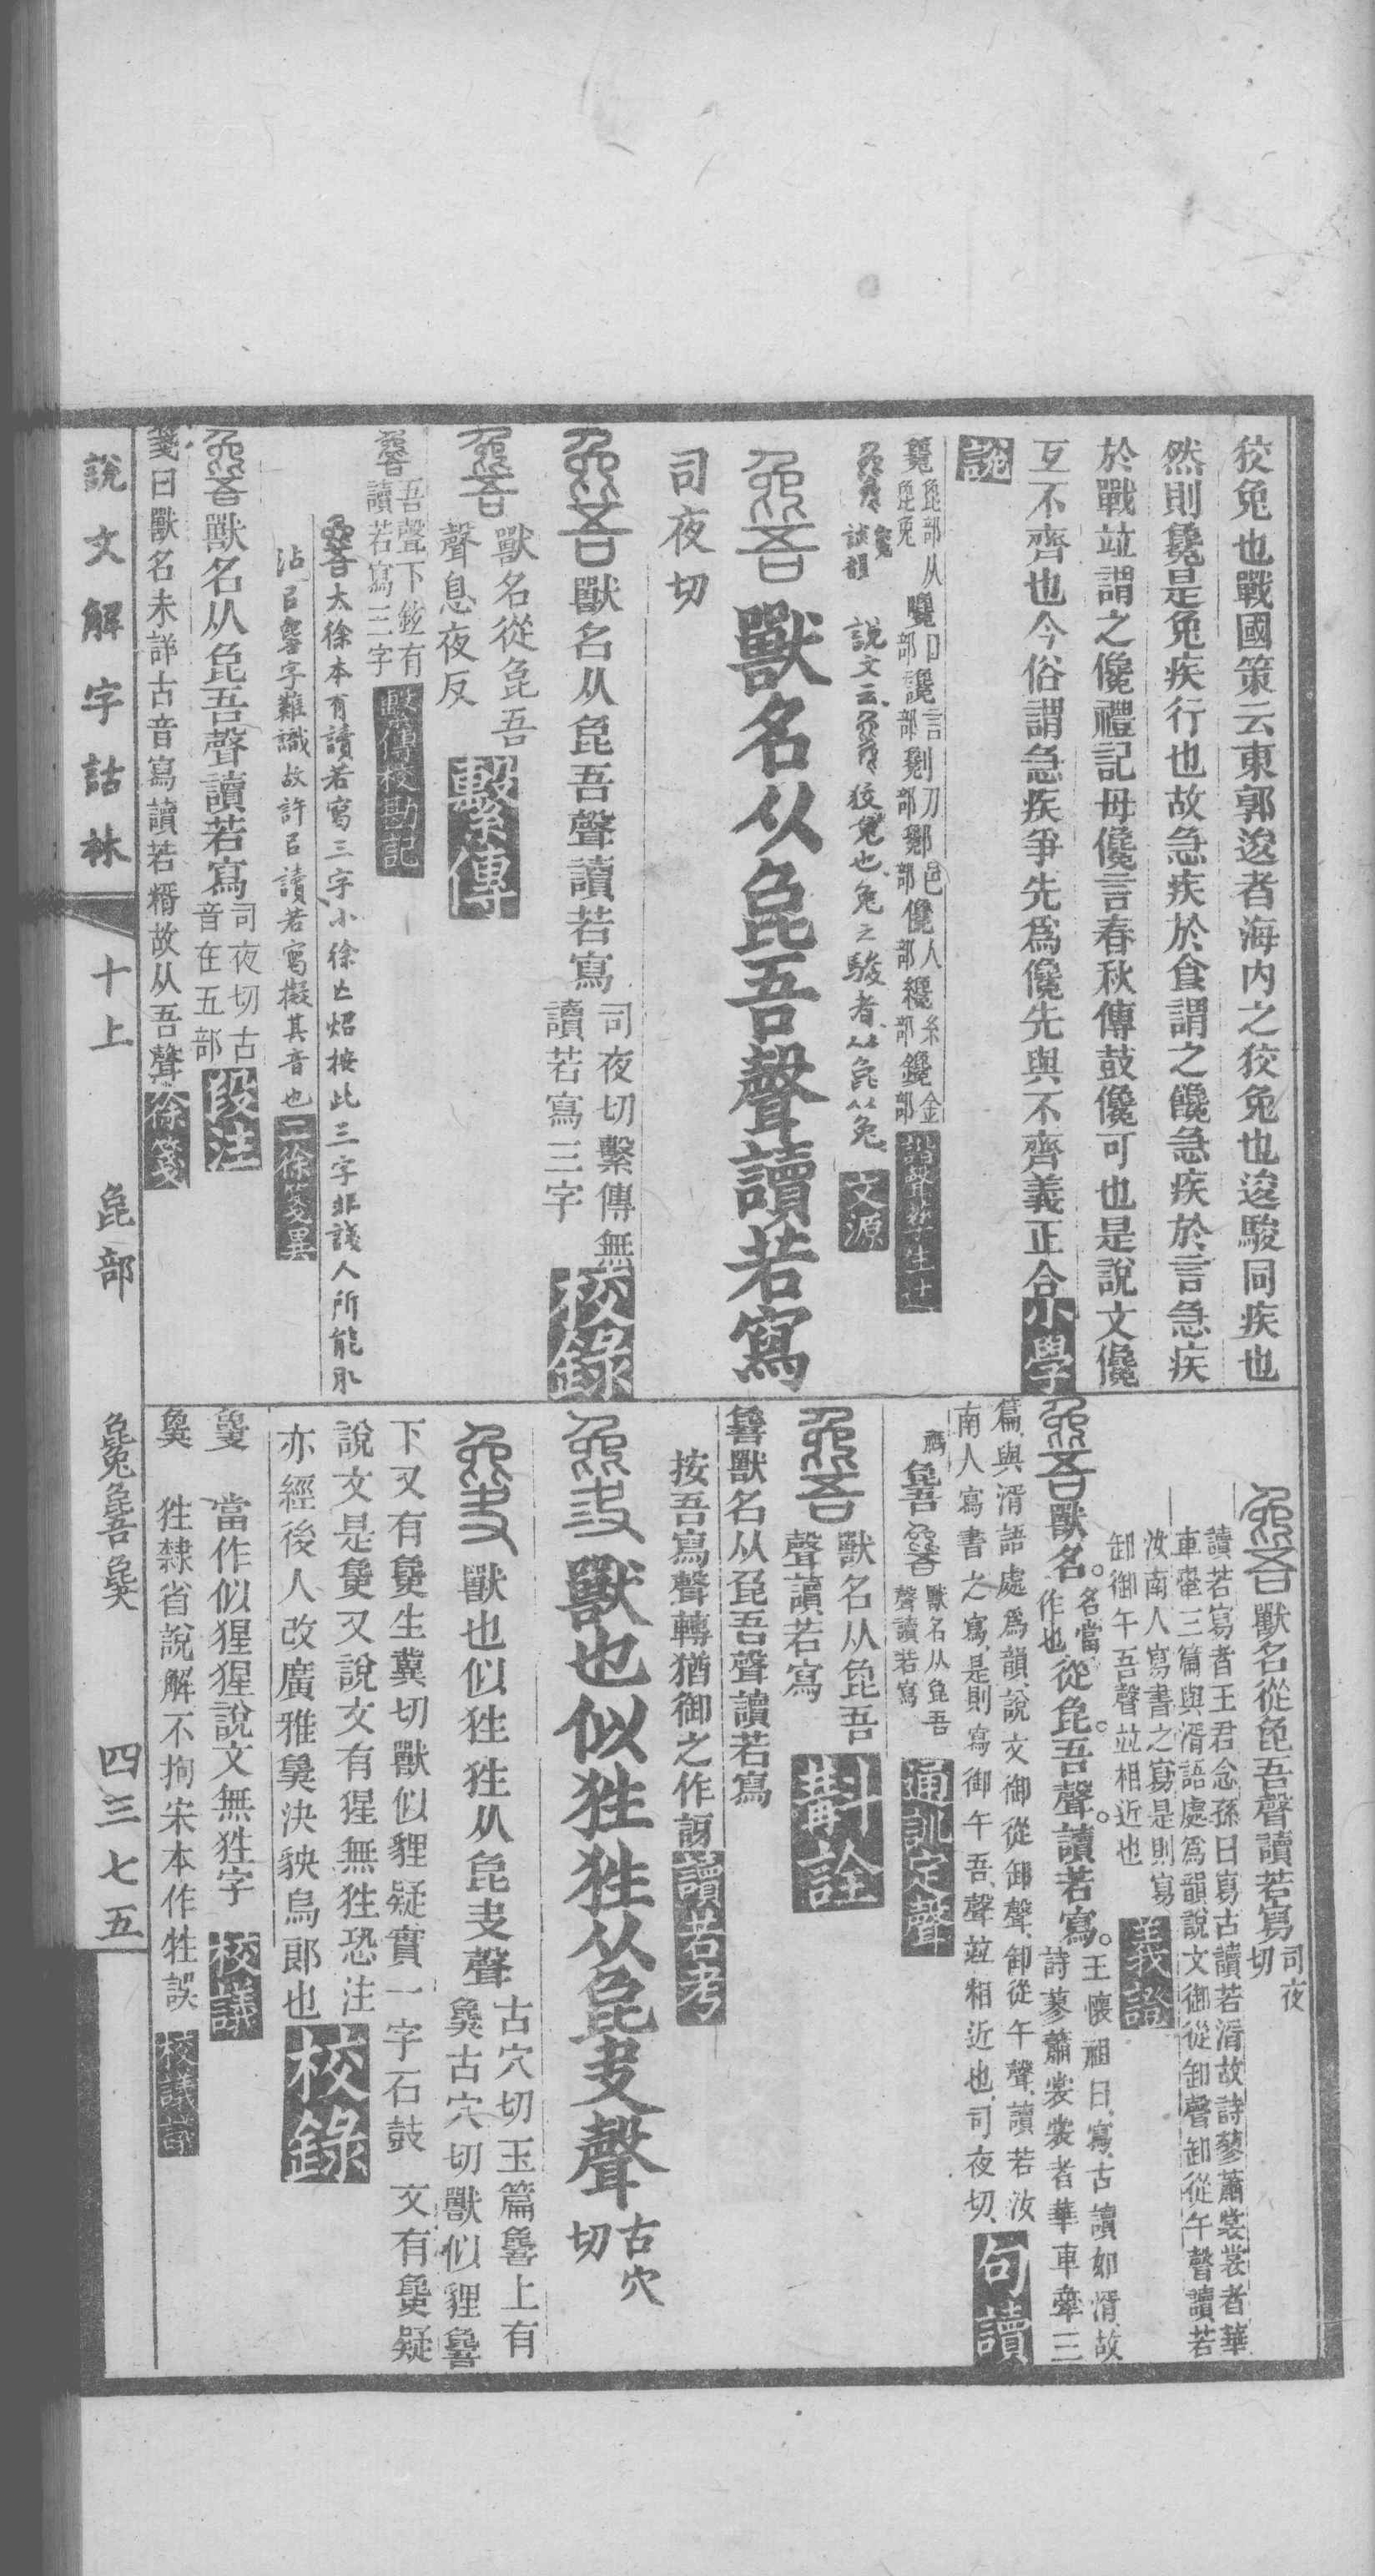 狡兔也戰國策云東郭逡者海內之狡兔也逡駿同疾也
然則毚是兔疾行也故急疾於食謂之饞急疾於言急疾
於戰竝謂之儳禮記毋儳言春秋傳鼓儳可也是說文儳
互不齊也今俗謂急疾爭先爲儳先與不齊義正合小學
說
毚㲋部从㲋兔 巉日部 讒言部 劖刀部 酁邑部 儳人部 纔糸部 鑱金部 諧聲孳生述
毚 談韻 說文云毚狡兔也兔之駿者从㲋从兔 文源
獸名从㲋吾聲讀若寫
司夜切
獸名从㲋吾聲讀若寫 司夜切繫傳無讀若寫三字 校錄
獸名從㲋吾聲息夜反 繫傳
吾聲下鉉有讀若寫三字 繫傳校勘記
大徐本有讀若寫三字小徐亡炤按此三字非淺人所能
沾 字難識故許 讀若寫擬其音也 二徐箋異
獸名从㲋吾聲讀若寫 司夜切古音在五部 段注
箋曰獸名未詳古音寫讀若糈故从吾聲 徐箋
獸名從㲋吾聲讀若寫 司夜切
讀若寫者王君念孫曰寫古讀若湑故詩蓼蕭裳裳者華
車舝三篇與湑語處爲韻說文御從卸聲卸從午聲讀若
汝南人寫書之寫是則寫
卸御午吾聲竝相近也 義證
獸名。名當作也從㲋。吾聲。讀若寫。王懷祖曰寫古讀如湑故詩蓼蕭裳裳者華車舝三
篇與湑語處爲韻說文御從卸聲卸從午聲讀若汝
南人寫書之寫是則寫御午吾聲竝相近也司夜切 句讀
獸名从㲋吾聲讀若寫 通訓定聲
獸名从㲋吾聲讀若寫 斠詮
獸名从㲋吾聲讀若寫
按吾寫聲轉猶御之作訝 讀若考
獸也似狌狌从㲋夬聲 古穴切
獸也似狌狌从㲋夬聲 古穴切玉篇 上有 古穴切獸似貍
下又有 生冀切獸似貍疑實一字石鼓文有 疑
說文是 又說文有猩無狌恐注
亦經後人改廣雅 決䫼烏郎也 校錄
當作似猩猩說文無狌字 校議
狌隸省說解不拘宋本作牲誤 校議議
說文解字詁林 十上 㲋部 四三七五